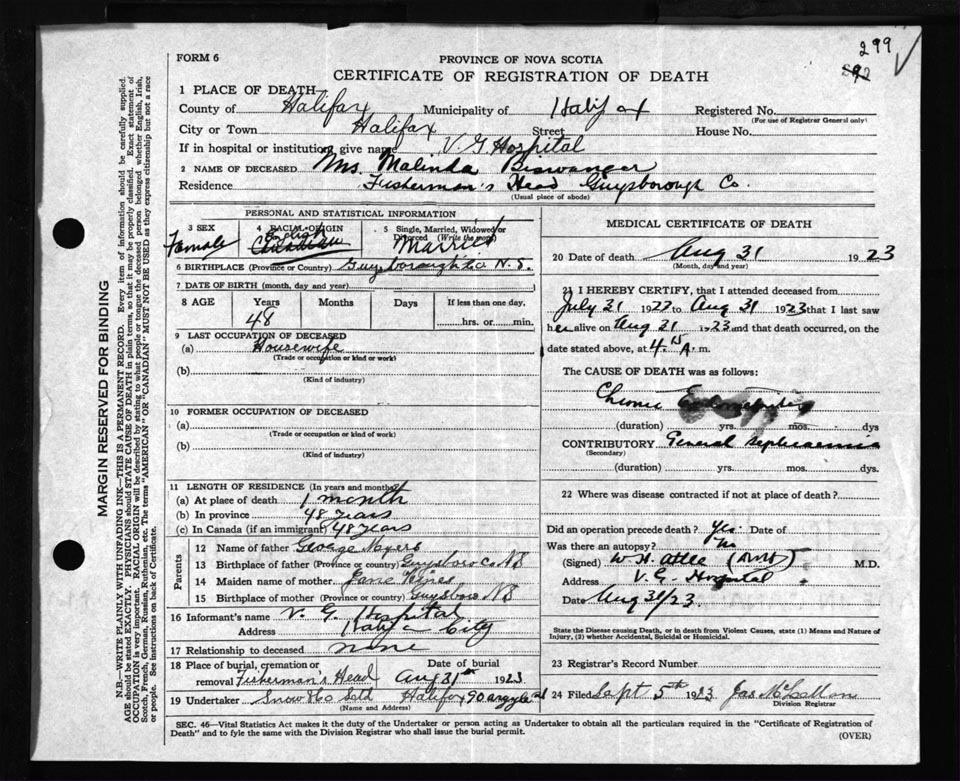 299
FORM 6
PROVINCE OF NOVA SCOTIA
CERTIFICATE OF REGISTRATION OF DEATH
1 PLACE OF DEATH—
County of Halifax Municipality of Halifax Registered No.
(For use of Registrar General only)
City or Town Halifax Street House No.
If in hospital or institution, give name V. G. Hospital
2 NAME OF DECEASED Mrs. Malinda
Residence Fisherman's Head Guysborough Co.
(Usual place of abode)
PERSONAL AND STATISTICAL INFORMATION
3 SEX 4 RACIAL ORIGIN 5 Single, Married, Widowed or Divorced (Write the word)
Female English Canadian Married
6 BIRTHPLACE (Province or Country) Guysborough Co N.S.
7 DATE OF BIRTH (month, day and year)
8 AGE Years Months Days If less than one day,
48 hrs. or min.
9 LAST OCCUPATION OF DECEASED
(a) Housewife
(Trade or occupation or kind of work)
(b)
(Kind of industry)
10 FORMER OCCUPATION OF DECEASED
(a)
(Trade or occupation or kind of work)
(b)
(Kind of industry)
11 LENGTH OF RESIDENCE (In years and months)
(a) At place of death 1 month
(b) In province 48 years
(c) In Canada (if an immigrant) 48 years
Parents
12 Name of father George Myers
13 Birthplace of father (Province or country) Guysboro Co NS
14 Maiden name of mother Jane
15 Birthplace of mother (Province or country) Guysboro NS
16 Informant's name V. G. Hospital
Address Halifax City
17 Relationship to deceased none
18 Place of burial, cremation or removal Fisherman's Head Date of burial Aug 31st 1923
19 Undertaker Snow & Co Ltd Halifax 90 argyle st
(Name and Address)
MEDICAL CERTIFICATE OF DEATH
20 Date of death Aug 31 1923
(Month, day and year)
21 I HEREBY CERTIFY, that I attended deceased from
July 31 1922 to Aug 31 1923 that I last saw
her alive on Aug 31 1923 and that death occurred, on the
date stated above, at 4.15 A. m.
The CAUSE OF DEATH was as follows:
Chronic
(duration) yrs. mos. dys
CONTRIBUTORY General Septicaemia
(Secondary)
(duration) yrs. mos. dys.
22 Where was disease contracted if not at place of death?
Did an operation precede death? Yes. Date of
Was there an autopsy? No
(Signed) W. H. M.D.
Address V. G. Hospital
Date Aug 31/23.
State the Disease causing Death, or in death from Violent Causes, state (1) Means and Nature of
Injury, (2) whether Accidental, Suicidal or Homicidal.
23 Registrar's Record Number
24 Filed Sept 5th 1923 Jas
Division Registrar
SEC. 46—Vital Statistics Act makes it the duty of the Undertaker or person acting as Undertaker to obtain all the particulars required in the "Certificate of Registration of
Death" and to fyle the same with the Division Registrar who shall issue the burial permit.
(OVER)
MARGIN RESERVED FOR BINDING
N.B.—WRITE PLAINLY WITH UNFADING INK—THIS IS A PERMANENT RECORD. Every item of information should be carefully supplied.
AGE should be stated EXACTLY. PHYSICIANS should STATE CAUSE OF DEATH in plain terms, so that it may be properly classified. Exact statement of
OCCUPATION is very important. RACIAL ORIGIN will be described by stating to what people or tongue the deceased person belonged whether English, Irish,
Scotch, French, German, Russian, Ruthenian, etc. The terms "AMERICAN" OR "CANADIAN" MUST NOT BE USED as they express citizenship but not a race
or people. See instructions on back of Certificate.